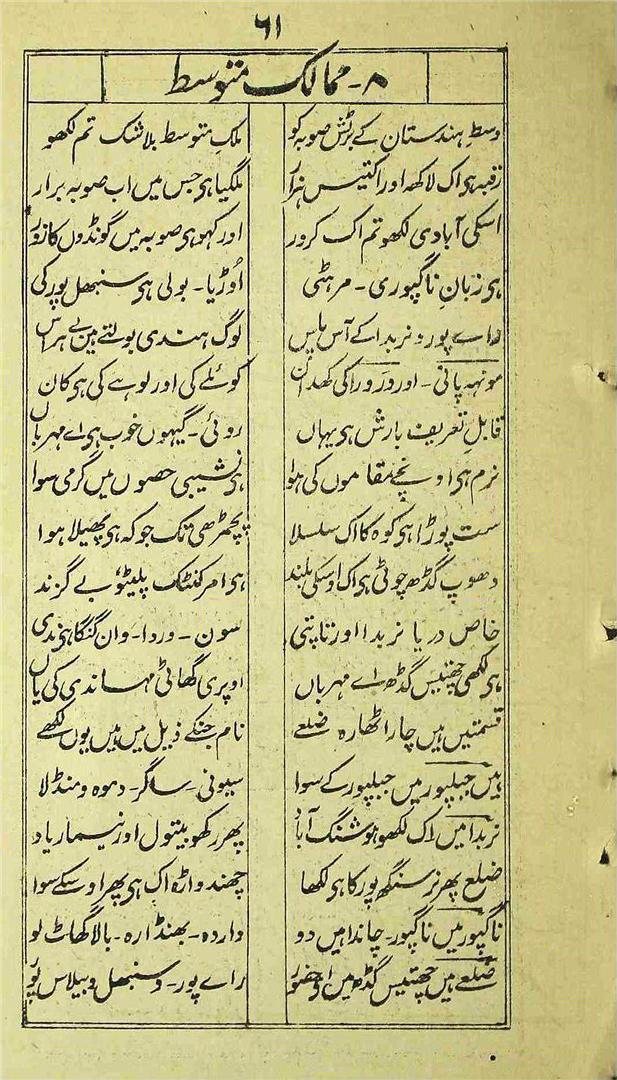 ۶۱
۸۔ ممالک متوسط
وسطِ ہندستان کے برٹش صوبہ کو ملکِ متوسط بلاشک تم لکھو
رقبہ ہی اک لاکھ اور اکتیس ہزار ملگیا ہی جس میں اب صوبہ برار
اسکی آبادی لکھو تم اک کرور اور کہو ہی صوبہ میں گونڈوں کا زور
ہی زبانِ ناگپوری۔ مرہٹی اُوڑیا۔ بولی ہی سنبھل پور کی
راے پور و نربدا کے آس پاس لوگ ہندی بولتے ہیں بے ہراس
مونہہ پانی۔ اور وَرورا کی کھدان کوئلے کی اور لوہے کی ہی کان
قابلِ تعریف بارش ہی یہاں روئی۔ گیہوں خوب ہی اے مہرباں
نرم ہی اونچے مقاموں کی ہوا ہی نشیبی حصوں میں گرمی سوا
ست پوڑا ہی کوہ کا اک سلسلا پچمڑھی تک جو کہ ہی پھیلا ہوا
دھوپ گڈھ چوٹی ہی اک اوسکی بلند ہی امرکنٹک پلیٹو، بے گزند
خاص دریا نربدا اور تاپتی سون۔ وردا۔ وان گنگا ہی ندی
ہی لکھی چھتیس گڈھ اے مہرباں اوپری گھاٹی مہاندی کی یاں
قسمتیں ہیں چار اٹھارہ ضلعے نام جنکے ذیل میں ہیں یوں لکھے
ہیں جبلپور میں جبلپور کے سوا سیونی۔ ساگر۔ دموہ و منڈلا
نربدا میں اک لکھو ہوشنگ آباد پھر رکھو بیتول اور نیمار یاد
ضلع پھر نرسنگھ پور کا ہی لکھا چھندواڑہ اک ہی پھر اوسکے سوا
ناگپور میں ناگپور۔ چاندا ہیں دو واردہ۔ بھنڈارہ۔ بالاگھاٹ لو
ضلعے ہیں چھتیس گڈھ میں اے حضور راے پور۔ و سنبھل و بیلاس پور